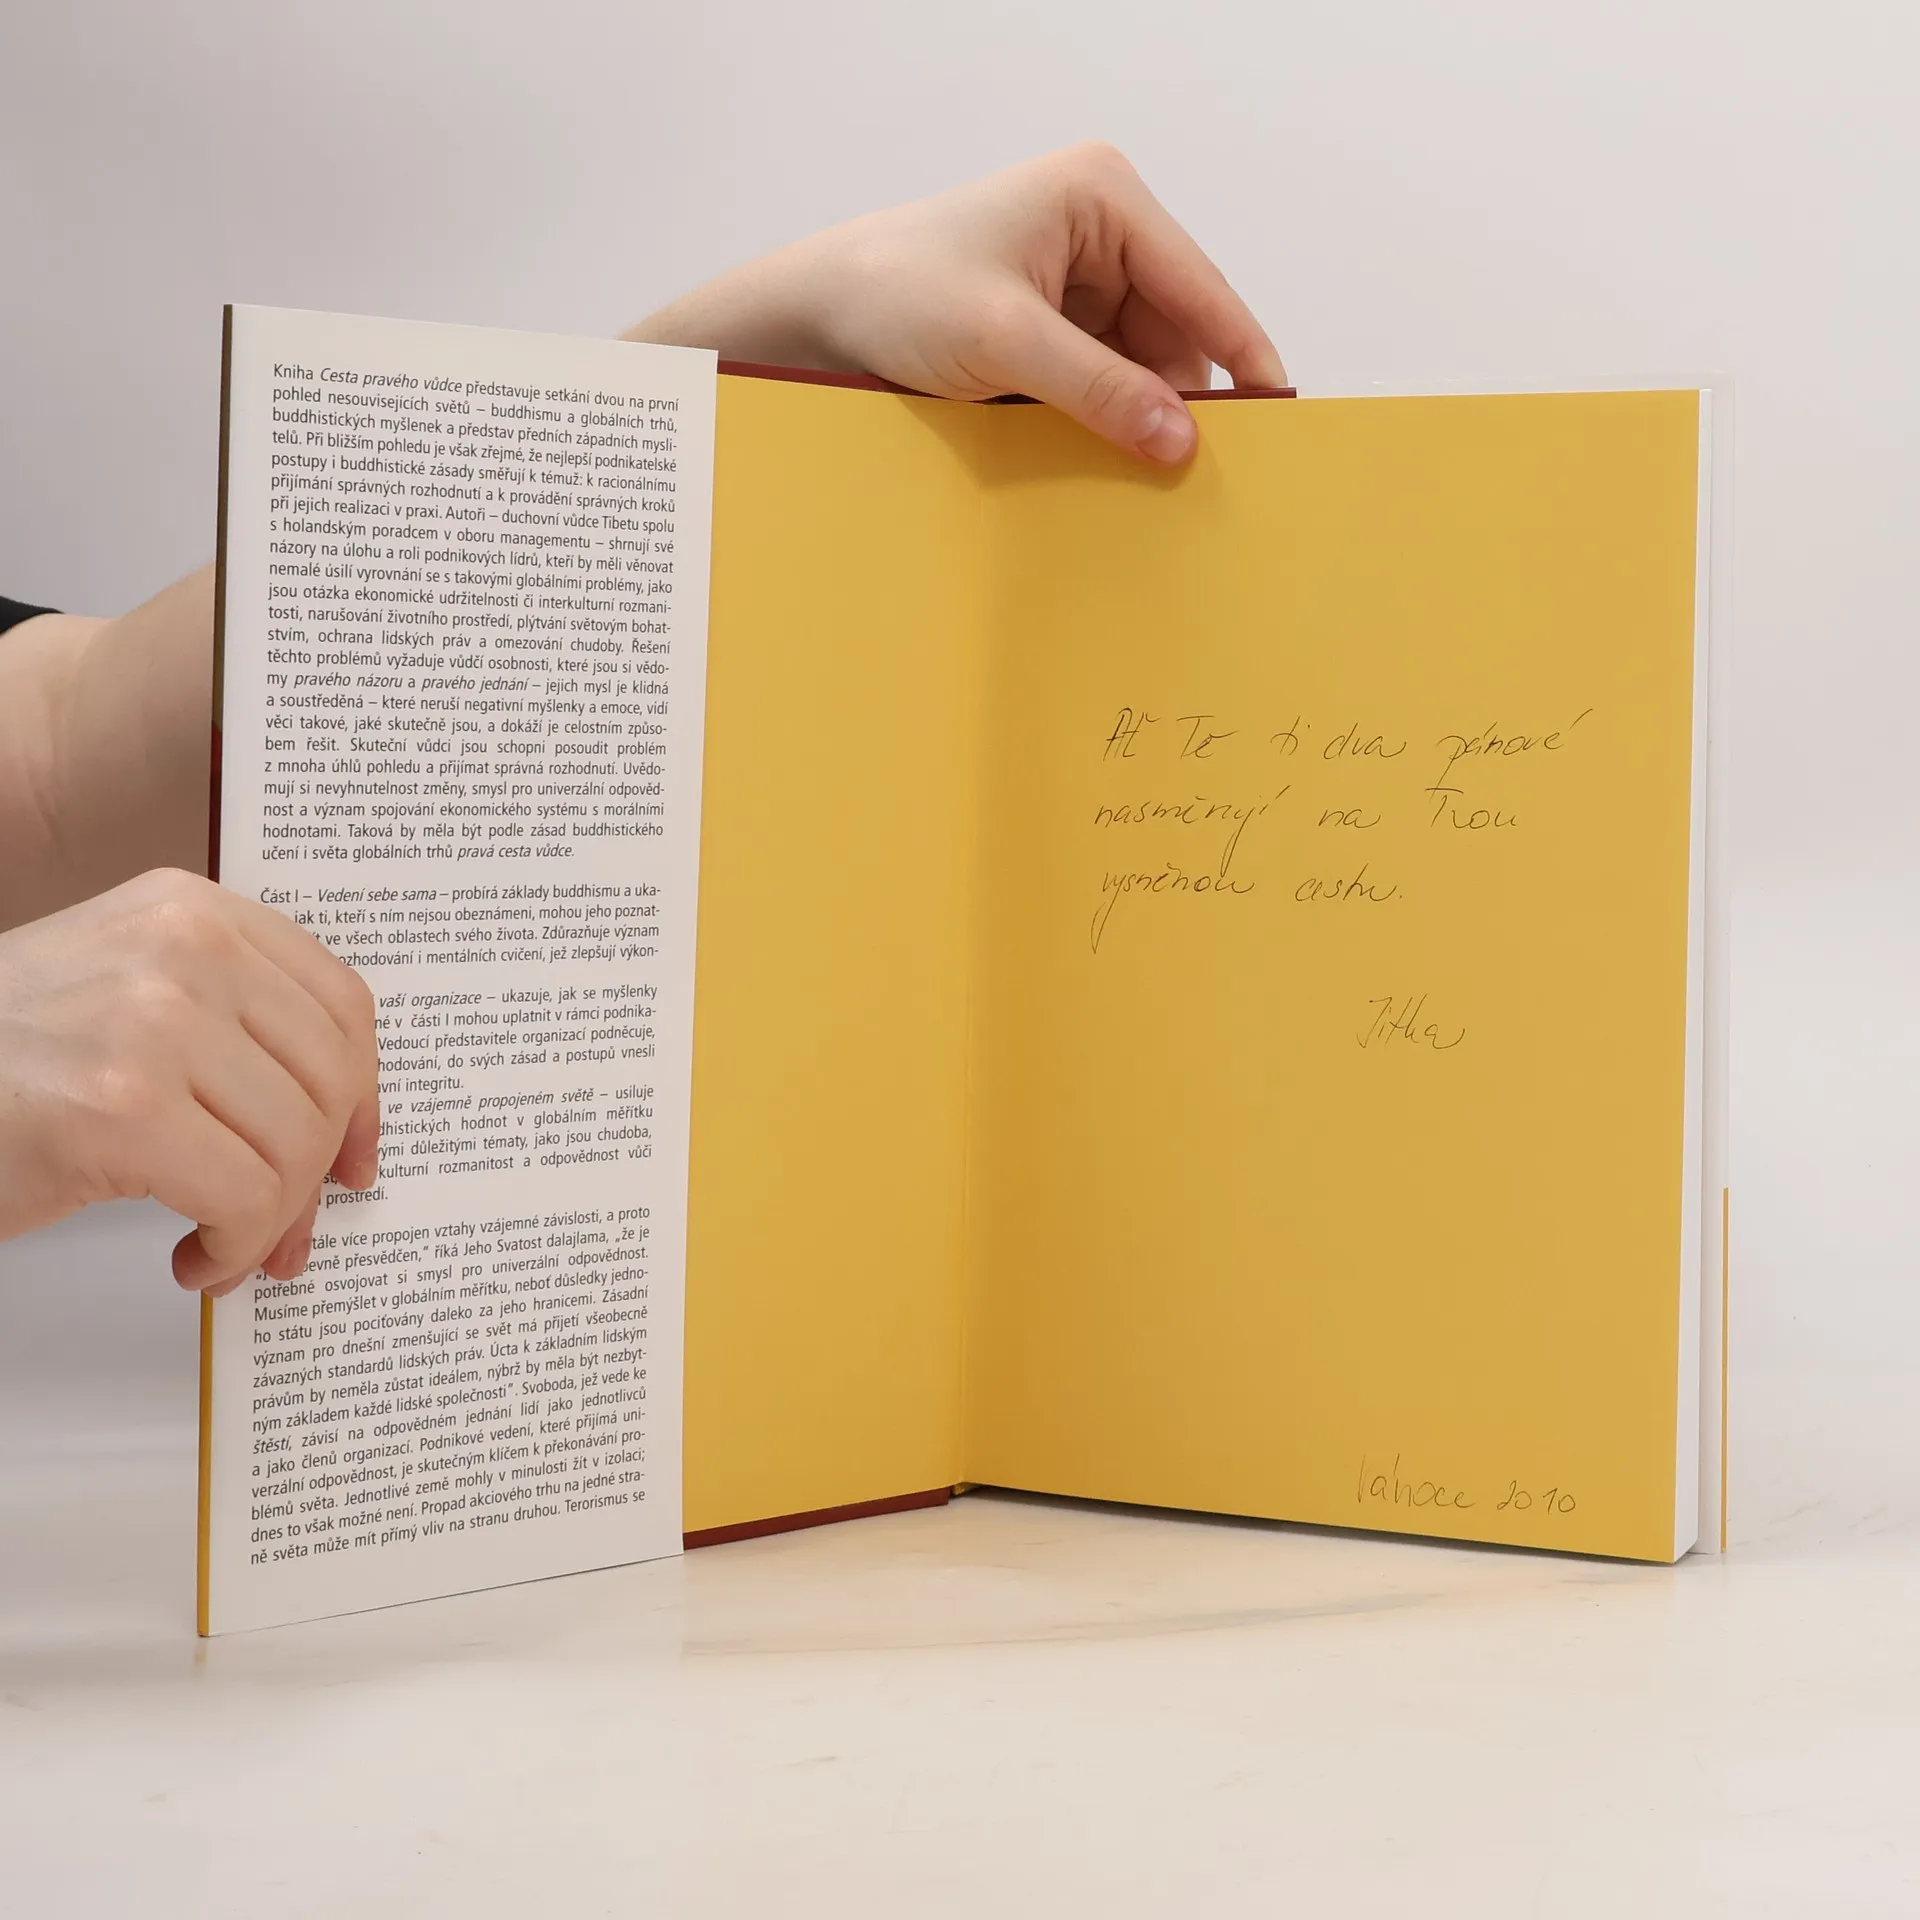 Kniha Cesta pravého vůdce představuje setkání dvou na první
pohled nesouvisejících světů – buddhismu a globálních trhů,
buddhistických myšlenek a představ předních západních mysli-
telů. Při bližším pohledu je však zřejmé, že nejlepší podnikatelské
postupy i buddhistické zásady směřují k témuž: k racionálnímu
přijímání správných rozhodnutí a k provádění správných kroků
při jejich realizaci v praxi. Autoři – duchovní vůdce Tibetu spolu
s holandským poradcem v oboru managementu – shrnují své
názory na úlohu a roli podnikových lídrů, kteří by měli věnovat
nemalé úsilí vyrovnání se s takovými globálními problémy, jako
jsou otázka ekonomické udržitelnosti či interkulturní rozmani-
tosti, narušování životního prostředí, plýtvání světovým bohat-
stvím, ochrana lidských práv a omezování chudoby. Řešení
těchto problémů vyžaduje vůdčí osobnosti, které jsou si vědo-
my pravého názoru a pravého jednání – jejich mysl je klidná
a soustředěná – které neruší negativní myšlenky a emoce, vidí
věci takové, jaké skutečně jsou, a dokáží je celostním způso-
bem řešit. Skuteční vůdci jsou schopni posoudit problém
z mnoha úhlů pohledu a přijímat správná rozhodnutí. Uvědo-
mují si nevyhnutelnost změny, smysl pro univerzální odpověd-
nost a význam spojování ekonomického systému s morálními
hodnotami. Taková by měla být podle zásad buddhistického
učení i světa globálních trhů pravá cesta vůdce.
Část I – Vedení sebe sama – probírá základy buddhismu a uka-
jak ti, kteří s ním nejsou obeznámeni, mohou jeho poznat-
ve všech oblastech svého života. Zdůrazňuje význam
ozhodování i mentálních cvičení, jež zlepšují výkon-
vaší organizace – ukazuje, jak se myšlenky
né v části I mohou uplatnit v rámci podnika-
Vedoucí představitele organizací podněcuje,
hodování, do svých zásad a postupů vnesli
avní integritu.
ve vzájemně propojeném světě – usiluje
dhistických hodnot v globálním měřítku
vými důležitými tématy, jako jsou chudoba,
st, kulturní rozmanitost a odpovědnost vůči
prostředí.
tále více propojen vztahy vzájemné závislosti, a proto
evně přesvědčen,“ říká Jeho Svatost dalajlama, „že je
potřebné osvojovat si smysl pro univerzální odpovědnost.
Musíme přemýšlet v globálním měřítku, neboť důsledky jedno-
ho státu jsou pociťovány daleko za jeho hranicemi. Zásadní
význam pro dnešní zmenšující se svět má přijetí všeobecně
závazných standardů lidských práv. Úcta k základním lidským
právům by neměla zůstat ideálem, nýbrž by měla být nezbyt-
ným základem každé lidské společnosti“. Svoboda, jež vede ke
štěstí, závisí na odpovědném jednání lidí jako jednotlivců
a jako členů organizací. Podnikové vedení, které přijímá uni-
verzální odpovědnost, je skutečným klíčem k překonávání pro-
blémů světa. Jednotlivé země mohly v minulosti žít v izolaci;
dnes to však možné není. Propad akciového trhu na jedné stra-
ně světa může mít přímý vliv na stranu druhou. Terorismus se
Ať Tě ti dva pánové
nasměrují na Tvou
vysněnou cestu.
Jitka
Vánoce 2010